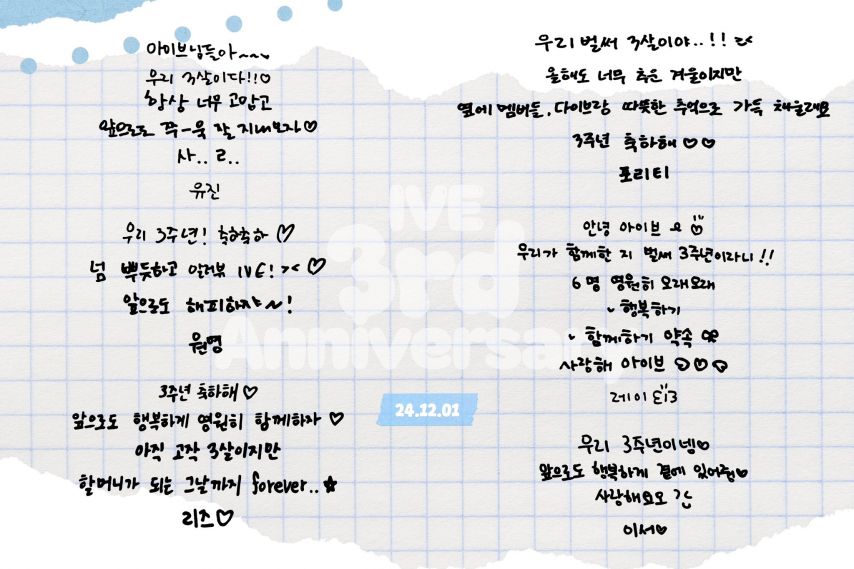 아이브님들아~~~♡
우리 3살이다!!♡
항상 너무 고맙고
앞으로도 쭈-욱 잘 지내보자♡
사.. ㄹ..
유진
우리 3주년! 축하축하 ♡
넘 뿌듯하고 알러뷰 IVE! >< ♡
앞으로도 해피하쟈~!
원영
3주년 축하해 ♡
앞으로도 행복하게 영원히 함께하자 ♡
아직 고작 3살이지만
할머니가 되는 그날까지 forever..★
리즈♡
우리 벌써 3살이야..!! ><
올해도 너무 추운 겨울이지만
옆에 멤버들, 다이브랑 따뜻한 추억으로 가득 채울래요
3주년 축하해 ♡♡
포리티
안녕 아이브
우리가 함께한 지 벌써 3주년이라니!!
6명 영원히 오래오래
- 행복하기
- 함께하기 약속
사랑해 아이브 ♡♡♡
레이
우리 3주년이넹♡
앞으로도 행복하게 곁에 있어줭♡
사랑해요오
이서♡
IVE
3rd
Anniversary
24.12.01